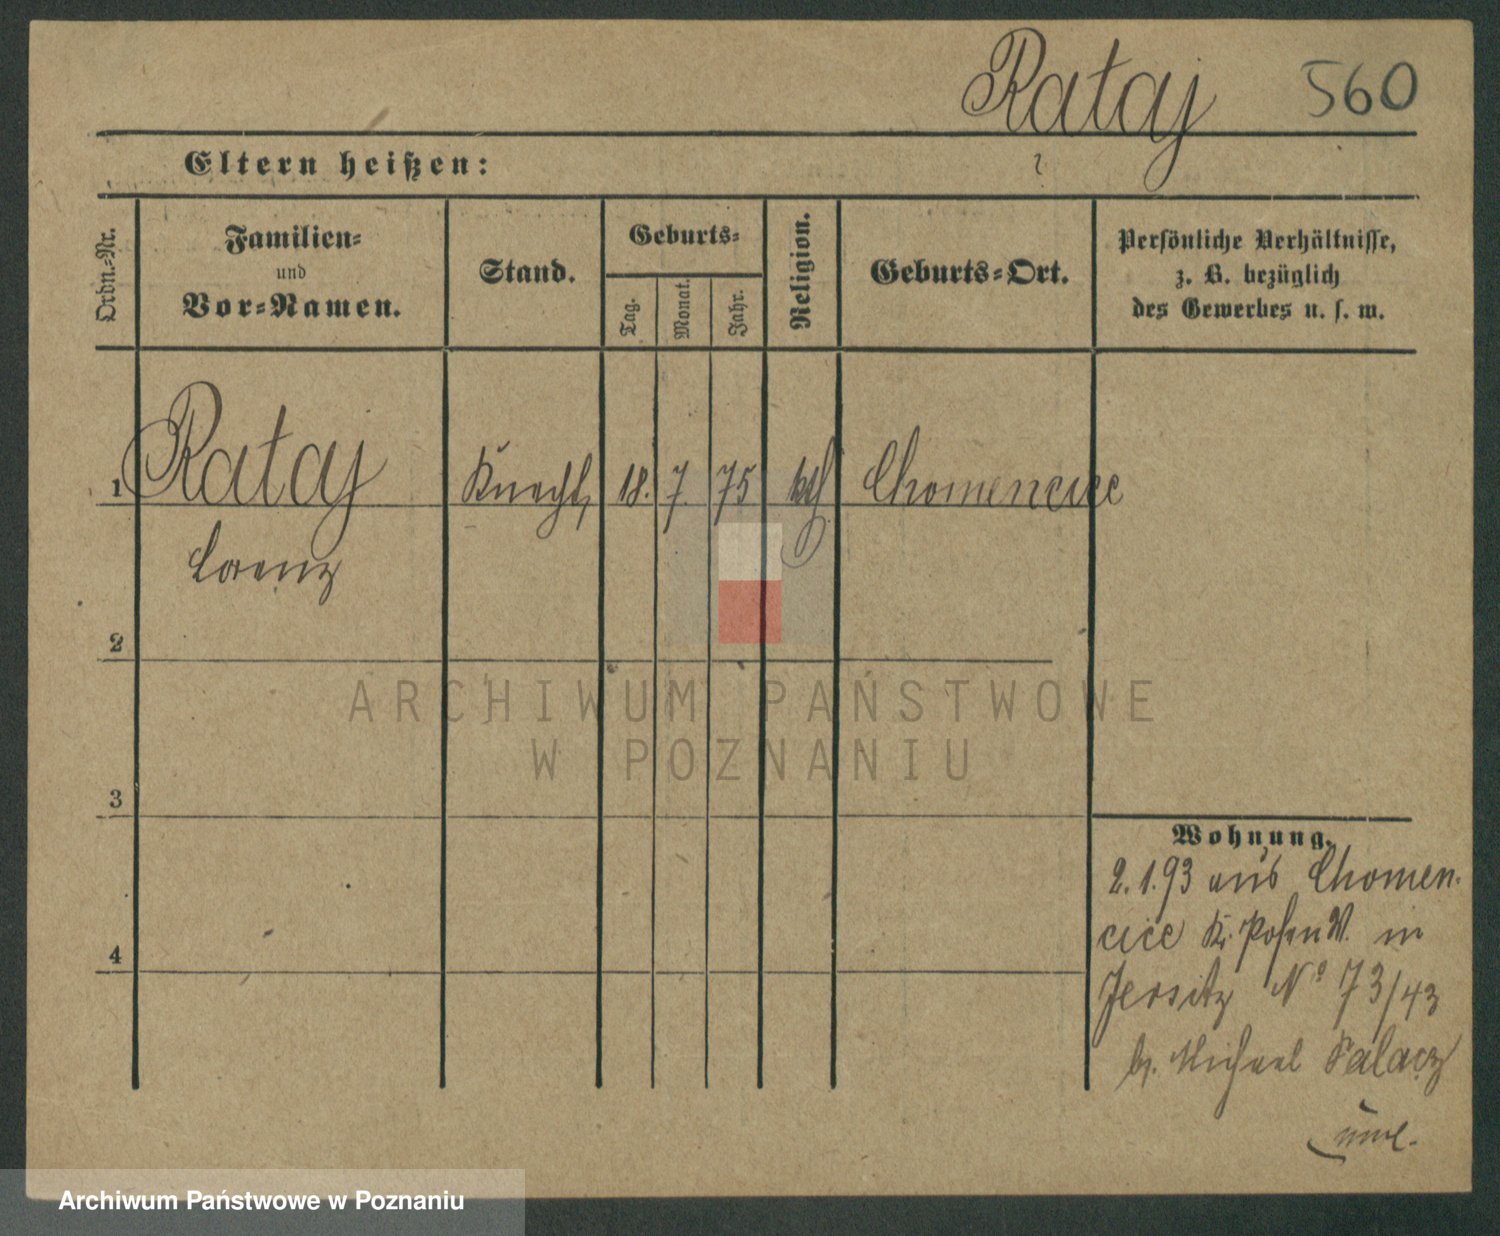 Rataj 560
Eltern heißen: ?
Ordn.-Nr.
Familien-
und
Vor-Namen.
Stand.
Geburts-
Tag.
Monat.
Jahr.
Religion.
Geburts-Ort.
Persönliche Verhältnisse,
z. B. bezüglich
des Gewerbes u. s. w.
1 Rataj Knecht, 18. 7. 75 kth Chomencice
Lorenz
2
ARCHIWUM PAŃSTWOWE
W POZNANIU
3
Wohnung.
2.1.93 aus Chomen-
cice Kr. Posen W. in
Jersitz No 73/43
bz. Michael Palacz
4
Archiwum Państwowe w Poznaniu